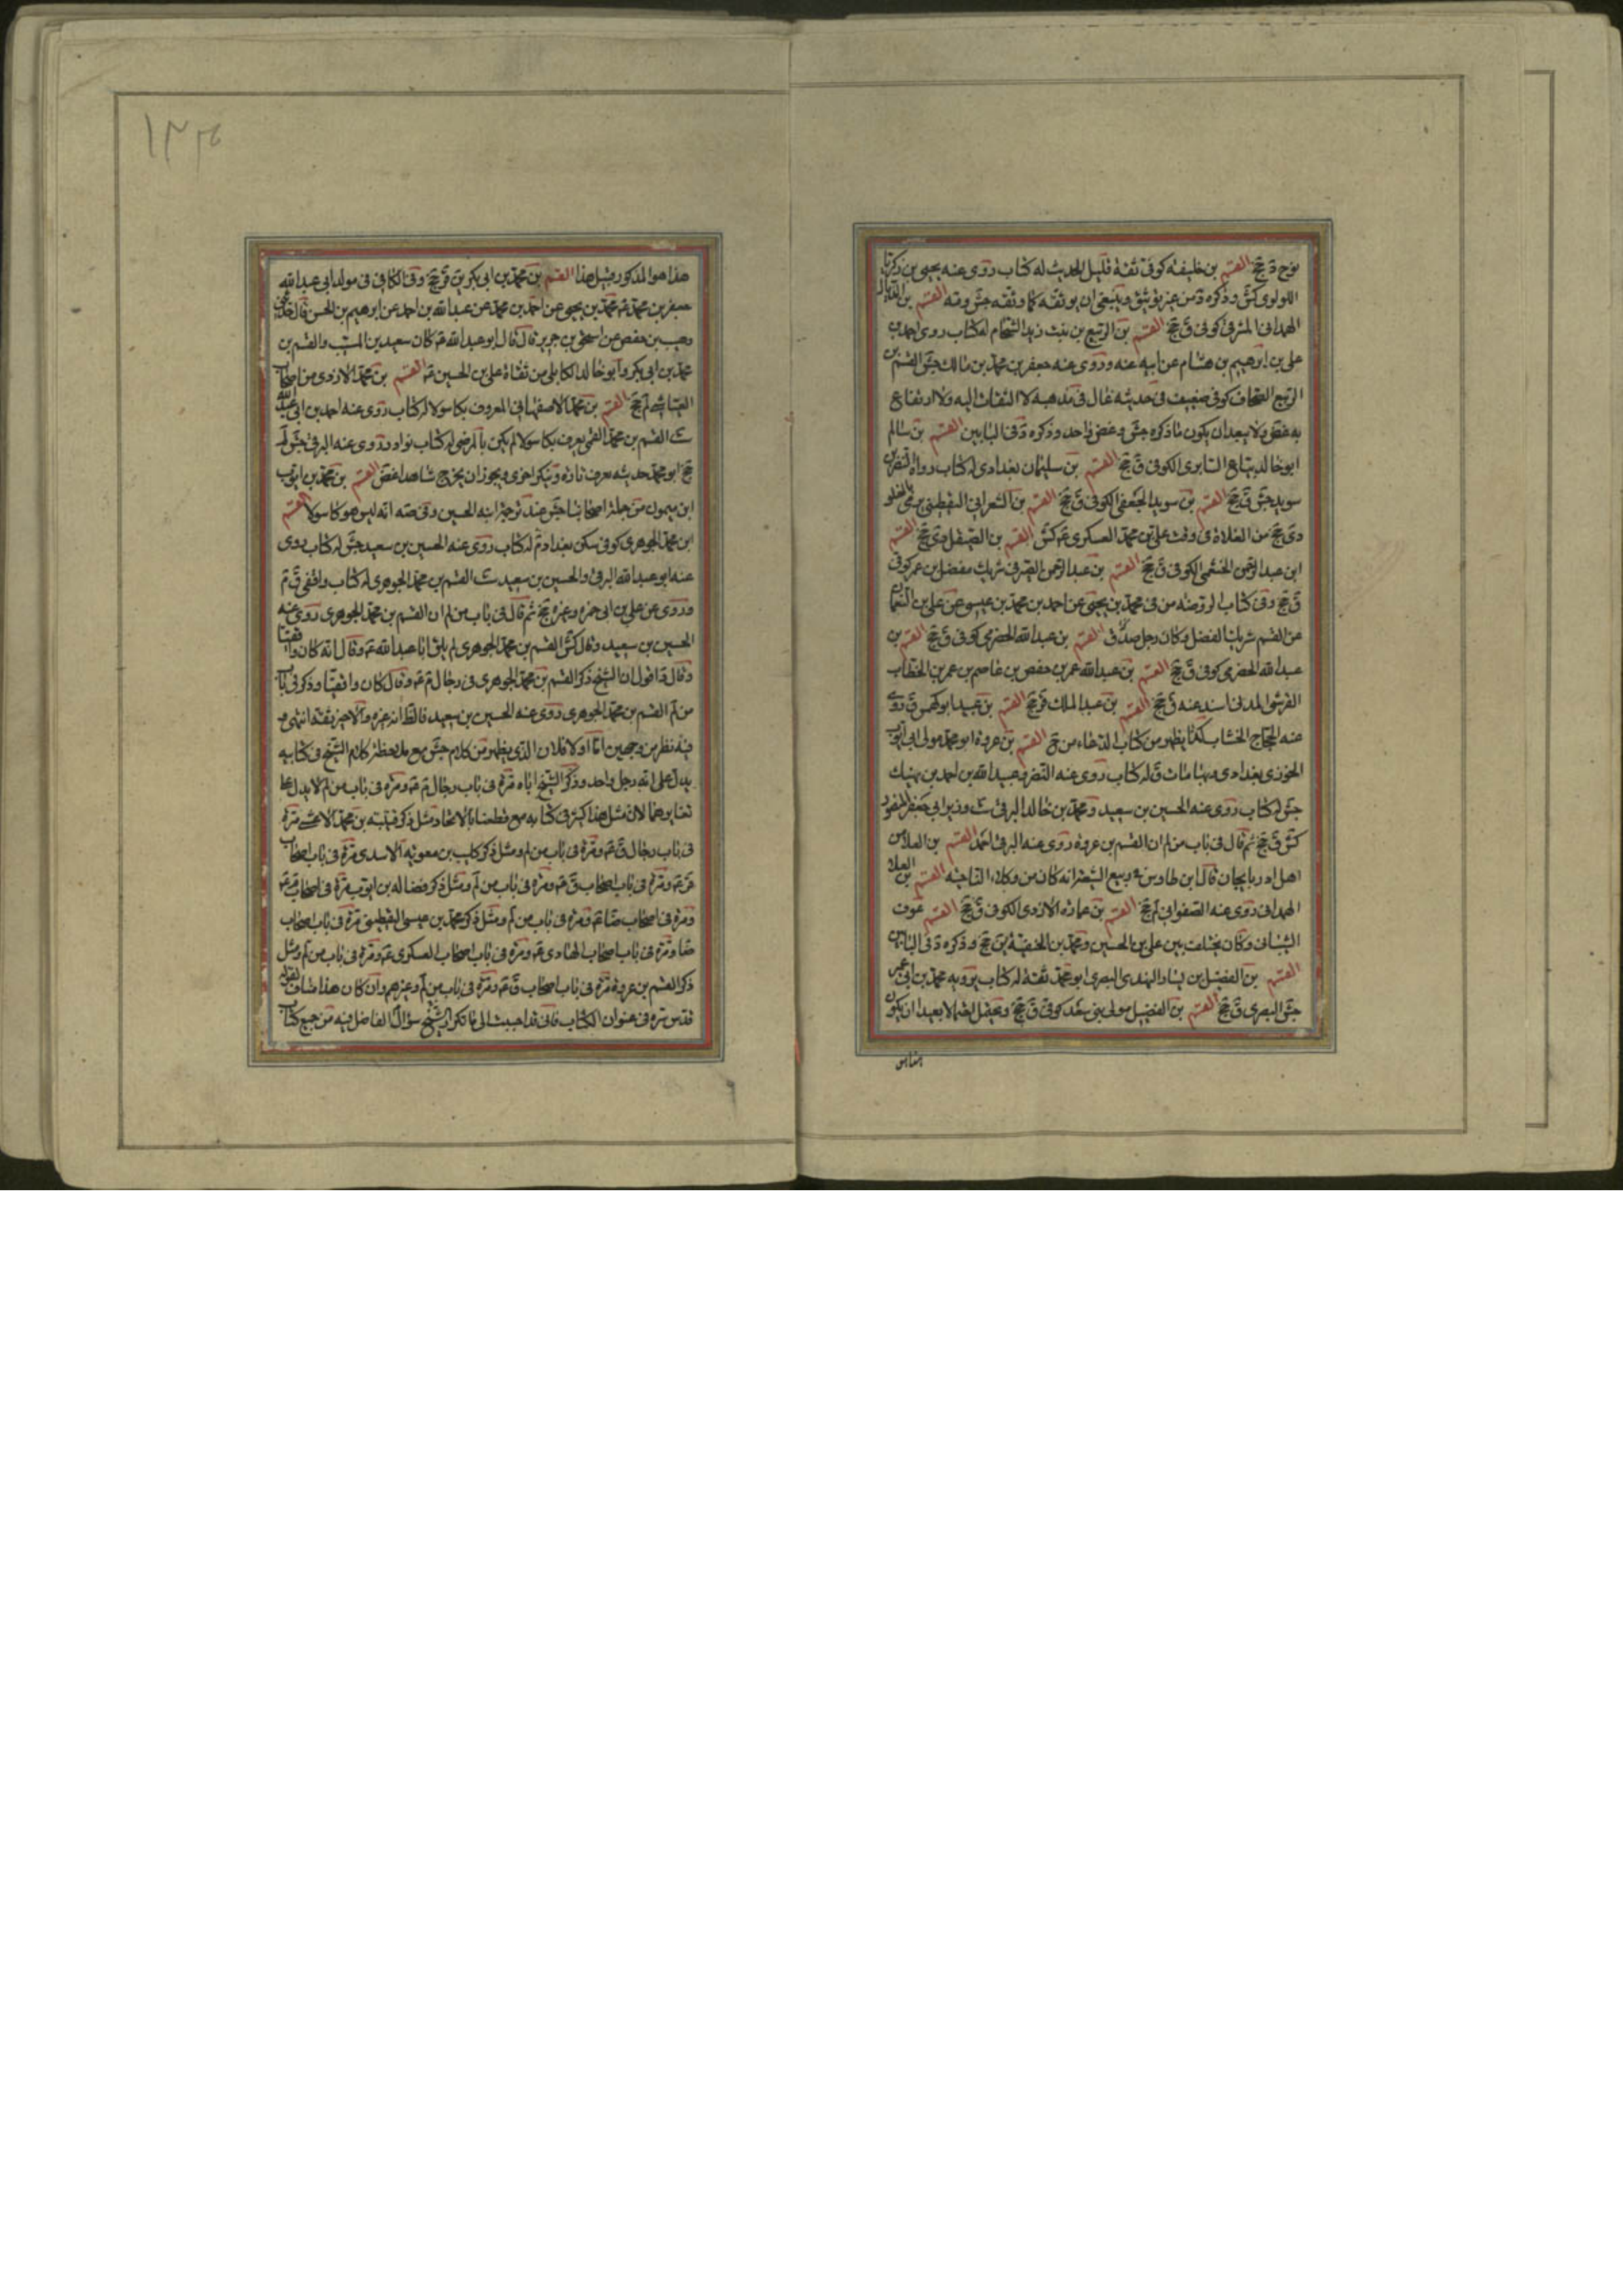 نوح دَ جخ القسم بن خليفه كوفى ثقة قليل الحديث له كتاب روى عنه يحيى بن زكريا
اللولوى كش وذكره دَ من غير توثيق وينبغى ان يوثقه كما وثقه جش وقه القسم بن
الهمدانى المشرقى كوفى ق جخ القسم بن الربيع بن بنت زيد الشحام له كتاب روى احمد بن
على بن ابرهيم بن هشام عن ابيه عنه وروى عنه جعفر بن محمد بن مالك جش القسم بن
الربيع الصحاف كوفى ضعيف فى حديثه غال فى مذهبه لا التفات اليه ولا ارتفاع
به غض ولا يبعد ان يكون ما ذكره جش و غض واحد وذكره دَ فى البابين القسم بن سالم
ابو خالد بياع السابرى الكوفى ق جخ القسم بن سليمان بغدادى له كتاب رواه النضر بن
سويد جش ق جخ القسم بن سويد الجعفى الكوفى ق جخ القسم بن الشعرانى اليقطينى رمى بالغلو
دى جخ من الغلاة فى وقت على بن محمد العسكرى عَم كش القسم بن الصيقل دى جخ القسم
ابن عبد الرحمن الخثعمى الكوفى ق جخ القسم بن عبد الرحمن الصيرفى شريك مفضل بن عمر كوفى
ق جخ وفى كتاب الروضه من فى محمد بن يحيى عن احمد بن محمد بن عيسى عن على بن النعمان
عن القسم شريك الفضل وكان رجل صدق القسم بن عبد الله الحضرمى كوفى ق جخ القسم بن
عبد الله الحضرمى كوفى ق جخ القسم بن عبد الله عمر بن حفص بن عاصم بن عمر بن الخطاب
القرشى المدنى اسند عنه ق جخ القسم بن عبد الملك قر جخ القسم بن عبيد ابو كهمس ق روى
عنه الحجاج الخشاب كذا يظهر من كتاب الدعاء من فى القسم بن عروة ابو محمد مولى ابى ايوب
الخوزى بغدادى وبها مات ق له كتاب روى عنه النضر وعبيد الله بن احمد بن نهيك
جش له كتاب روى عنه الحسين بن سعيد ومحمد بن خالد البرقى ست وزير ابى جعفر المنصور
كش ق جخ ثم قال فى باب من لم ان القسم بن عروة روى عنه البرقى احمد القسم بن العلا من
اهل اذربايجان قال ابن طاوس فى ربيع الشيعة انه كان من وكلاء الناحيه القسم بن العلا
الهمدانى روى عنه الصفوانى لم جخ القسم بن عماره الازدى الكوفى ق جخ القسم عوف
الشيبانى وكان يختلف بين على بن الحسين ومحمد بن الحنفية ين جخ وذكره دَ فى البابين
القسم بن الفضيل بن يسار النهدى البصرى ابو محمد ثقة له كتاب يرويه محمد بن ابى عمير
جش البصرى ق جخ القسم بن الفضيل مولى بنى سعد كوفى ق جخ ويحتمل ايضا لا يبعد ان يكون
هذا هو
١٣٢
هذا هو المذكور قبل هذا القسم بن محمد بن ابى بكر ين قر جخ وفى الكافى فى مولد ابى عبد الله
جعفر بن محمد عَم محمد بن يحيى عن احمد بن محمد عن عبد الله بن احمد عن ابرهيم بن الحسن قال حدثنى
وهب بن حفص عن اسحق بن جرير قال قال ابو عبد الله عَم كان سعيد بن المسيب والقسم بن
محمد بن ابى بكر وابو خالد الكابلى من ثقاة على بن الحسين عَم القسم بن محمد الازدى من اصحاب
العياشى لم جخ القسم بن محمد الاصفهانى المعروف بكاسولا له كتاب روى عنه احمد بن ابى عبد الله
ست القسم بن محمد القمى يعرف بكاسولا لم يكن بالمرضى له كتاب نوادر روى عنه البرقى جش لم
جخ ابو محمد حديثه يعرف تارة وينكر اخرى ويجوز ان يخرج شاهدا غض القسم بن محمد بن ايوب
ابن ميمون من جلة اصحابنا جش عند ترجمة ابنه الحسين وفى صه انه ليس هو كاسولا القسم
ابن محمد الجوهرى كوفى سكن بغداد م له كتاب روى عنه الحسين بن سعيد جش له كتاب روى
عنه ابو عبد الله البرقى والحسين بن سعيد ست القسم بن محمد الجوهرى له كتاب واقفى ق م
وروى عن على بن ابى حمزه وغيره جخ ثم قال فى باب من لم ان القسم بن محمد الجوهرى روى عنه
الحسين بن سعيد وقال كش القسم بن محمد الجوهرى لم يلق ابا عبد الله عَم وقال انه كان واقفيا
وقال دَ اقول ان الشيخ ذكر القسم بن محمد الجوهرى فى رجال م عَم وقال كان واقفيا وذكر فى باب
من لم القسم بن محمد الجوهرى روى عنه الحسين بن سعيد فالظاهر انه غيره والاخير ثقة انتهى و
فيه نظر من وجهين اما اولا فلان الذى يظهر من كلام جش مع ملاحظة كلام الشيخ فى كتابيه
يدل على انه رجل واحد وذكر الشيخ اياه مرة فى باب رجال م عَم ومرة فى باب من لم لا يدل على
تغايرهما لان مثل هذا كثير فى كتابه مع قطعنا بالاتحاد مثل ذكر قتيبه بن محمد الاعشى مرة
فى باب رجال ق عَم ومرة فى باب من لم ومثل ذكر كليب بن معوية الاسدى مرة فى باب اصحاب
قر عَم ومرة فى باب اصحاب ق عَم ومرة فى باب من لم ومثل ذكر فضاله بن ايوب مرة فى اصحاب م عَم
ومرة فى اصحاب ضا عَم ومرة فى باب من لم ومثل ذكر محمد بن عيسى اليقطينى مرة فى باب اصحاب
ضا ومرة فى باب اصحاب الهادى عَم ومرة فى باب اصحاب العسكرى عَم ومرة فى باب من لم ومثل
ذكر القسم بن عروة مرة فى باب اصحاب ق عَم ومرة فى باب من لم وغيرهم وان كان هذا مناف لقوله
قدس سره فى عنوان الكتاب فانى قد اجبت الى ما تكرر الشيخ سؤال الفاضل فيه من جمع كتاب